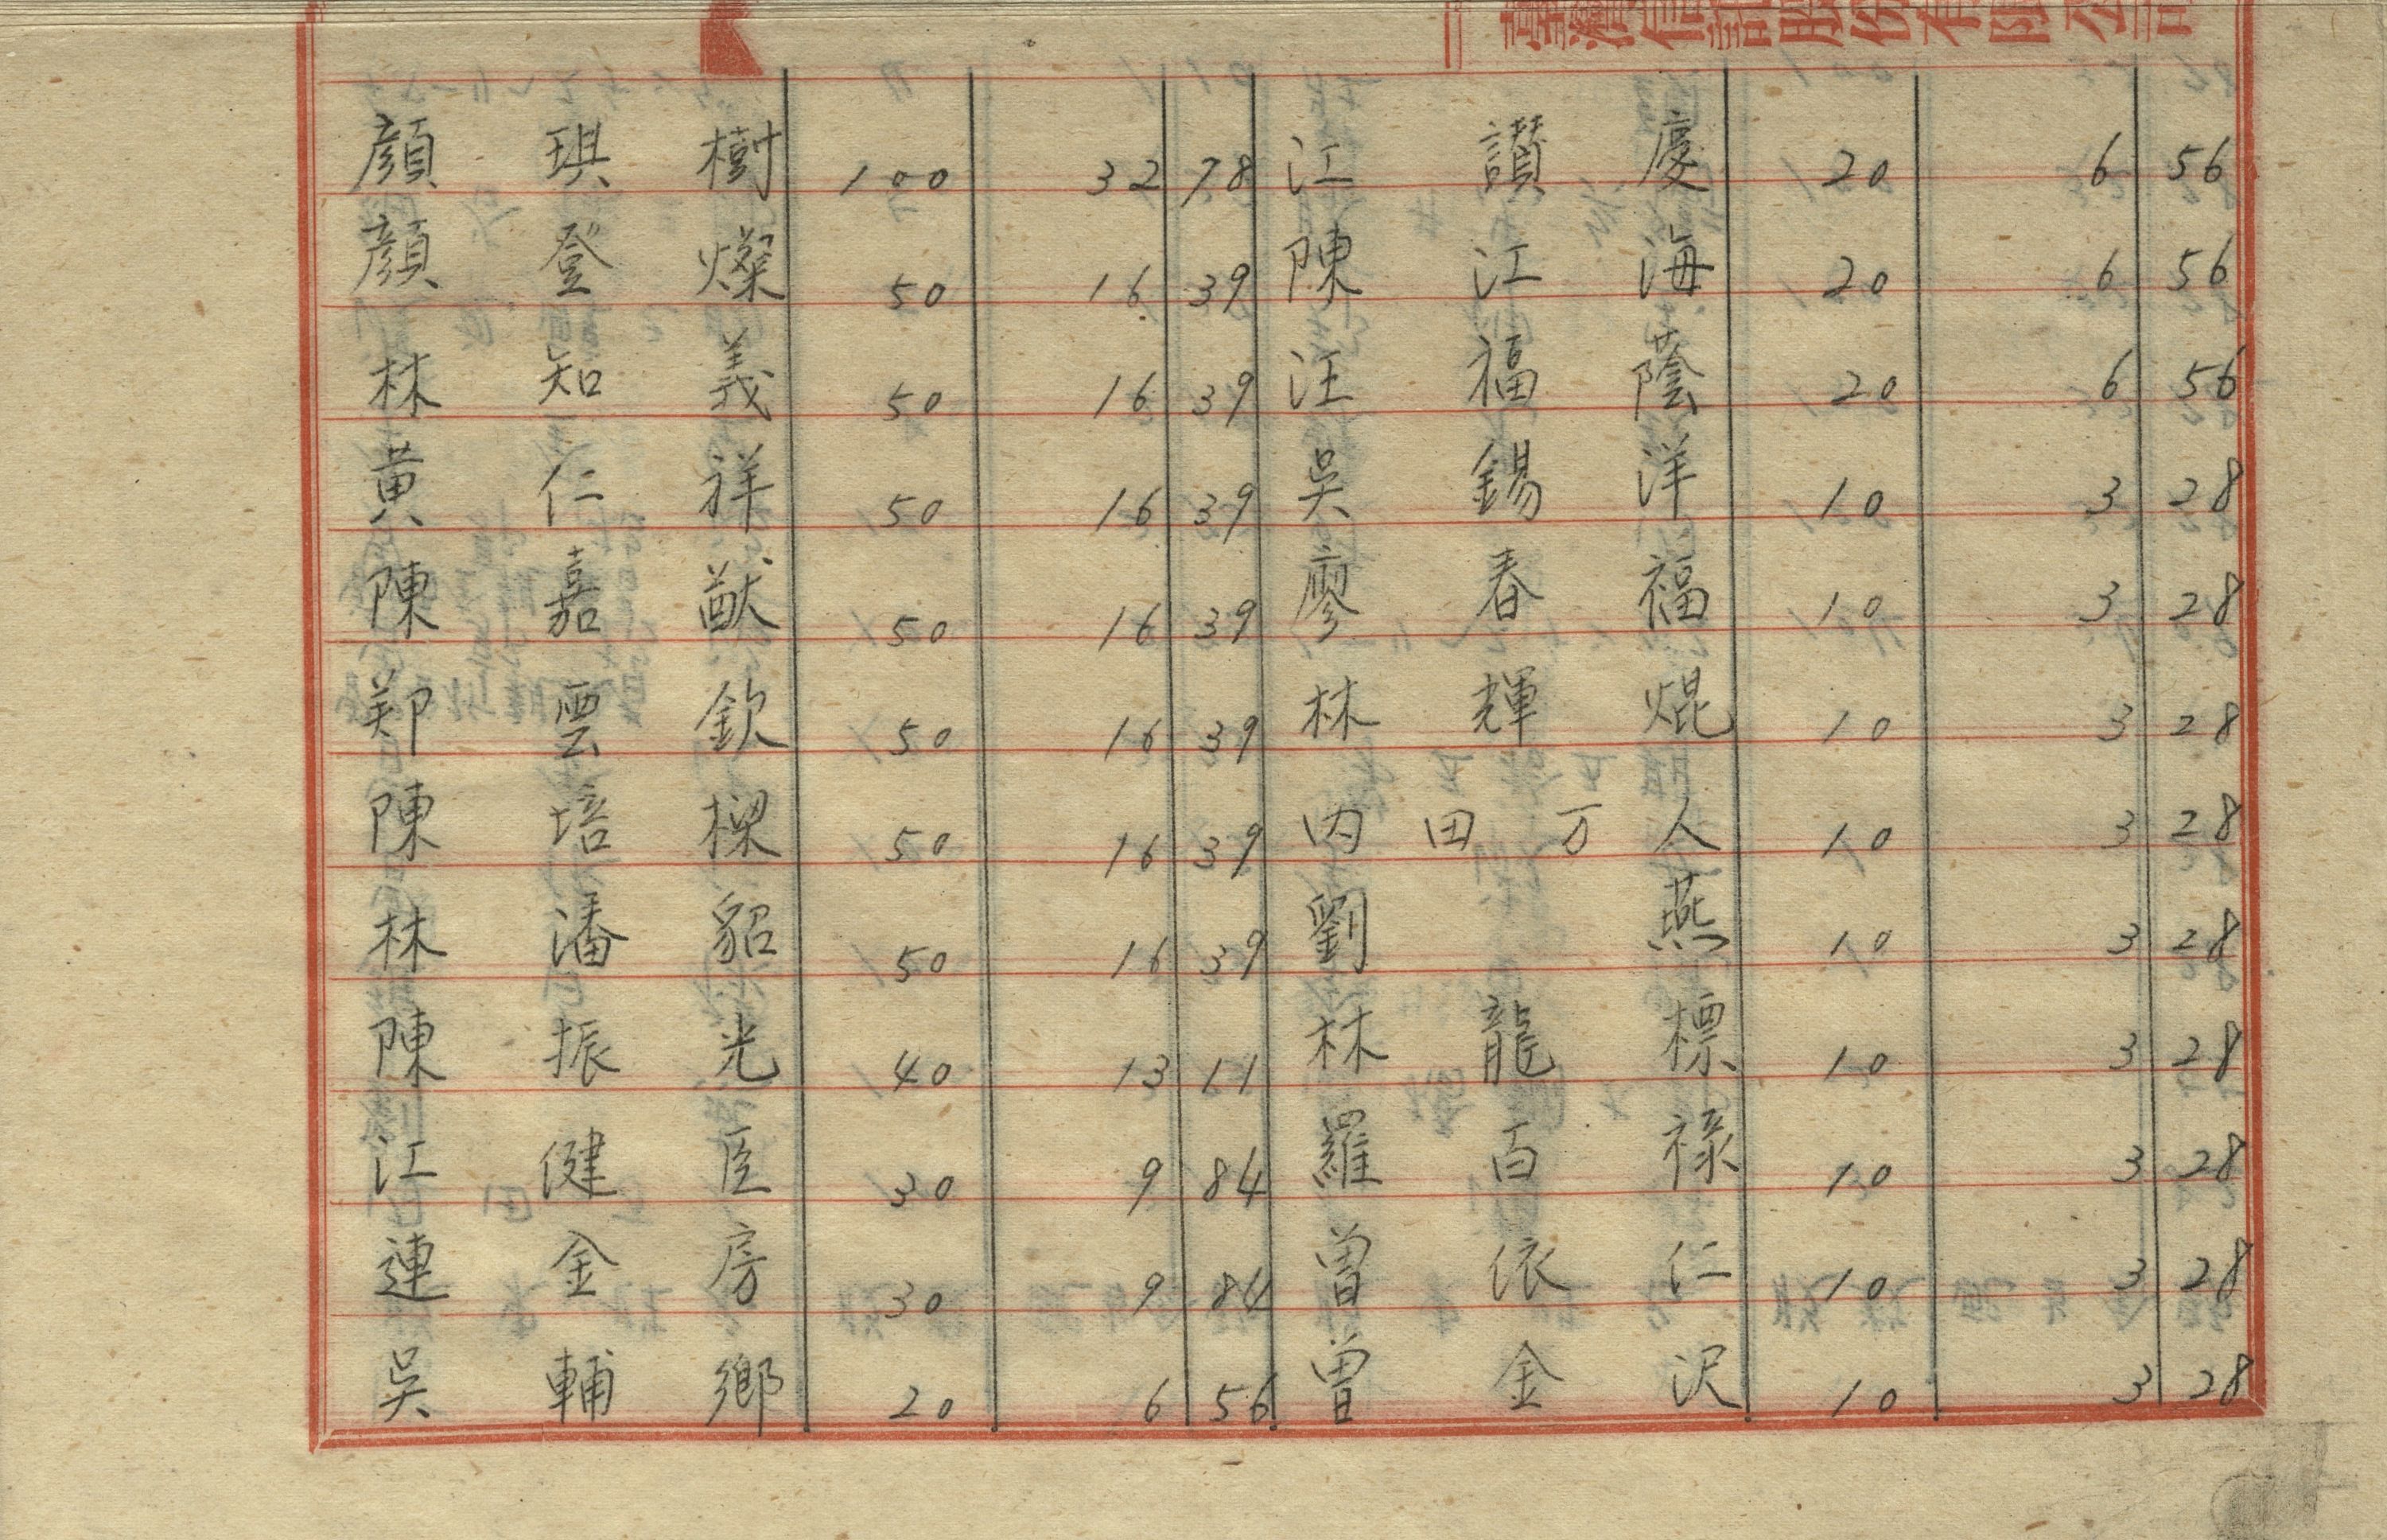 臺灣信託股份有限公司
顏琪樹 100 32 78 江讃慶 20 6 56
顏登燦 50 16 39 陳江海 20 6 56
林知義 50 16 39 汪福蔭 20 6 56
黄仁祥 50 16 39 吳錫洋 10 3 28
陳嘉猷 50 16 39 廖春福 10 3 28
郑雲欽 50 16 39 林輝焜 10 3 28
陳培樑 50 16 39 内田万人 10 3 28
林潘貂 50 16 39 劉燕 10 3 28
陳振光 40 13 11 林龍標 10 3 28
江健臣 30 9 84 羅百祿 10 3 28
連金房 30 9 84 曽依仁 10 3 28
吳輔鄉 20 6 56 曽金沢 10 3 28